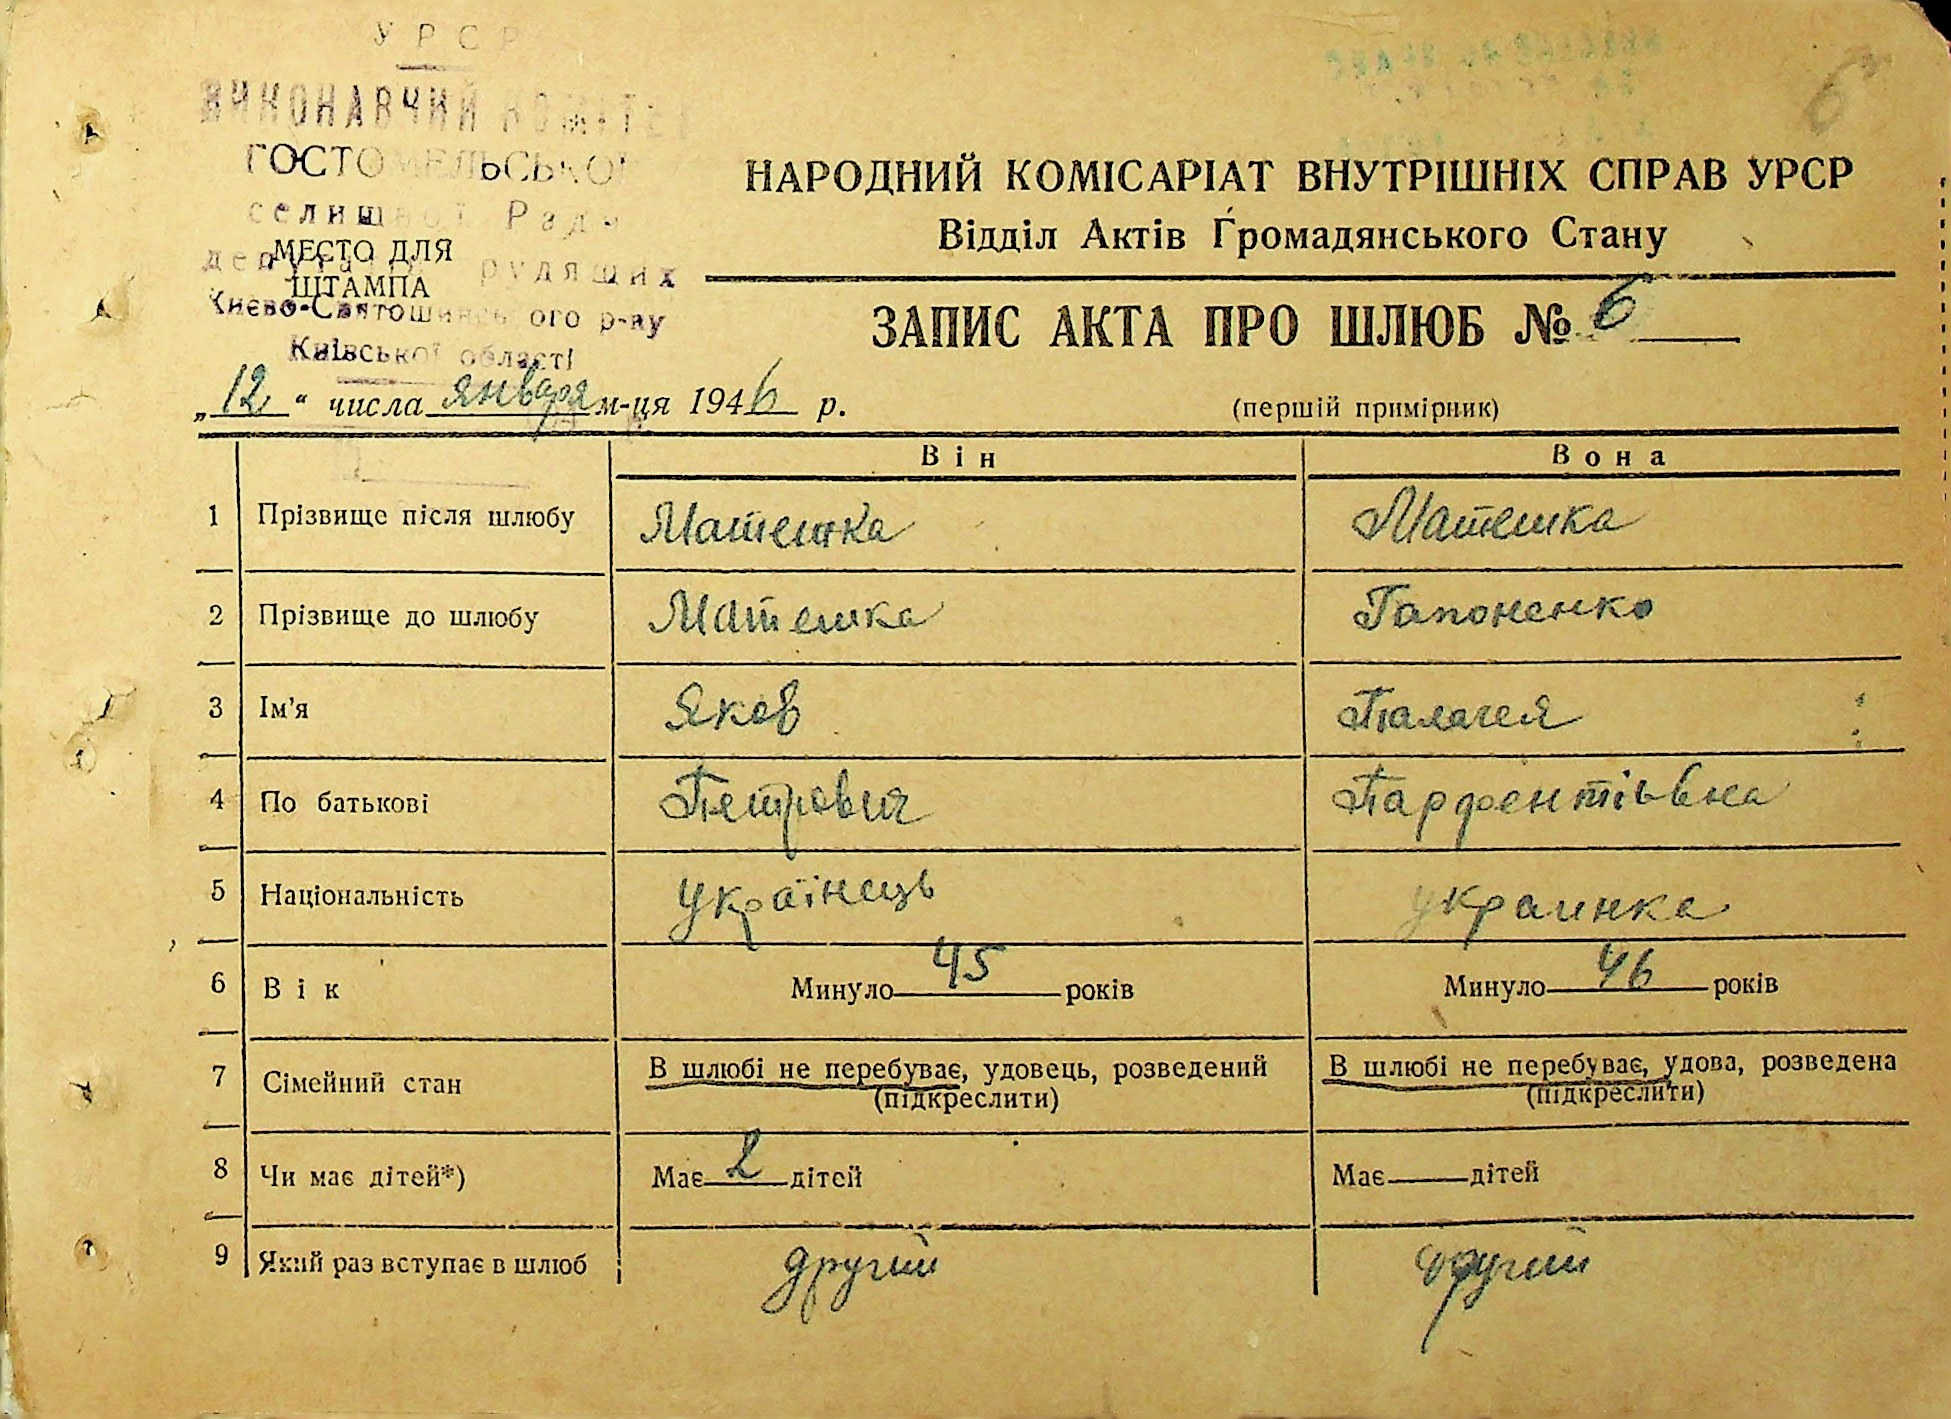 УРСР
ВИКОНАВЧИЙ КОМІТЕТ
ГОСТОМЕЛЬСЬКОЇ
селищної Ради
депутатів трудящих
МЕСТО ДЛЯ
ШТАМПА
Києво-Святошинського р-ну
Київської області
6
НАРОДНИЙ КОМІСАРІАТ ВНУТРІШНІХ СПРАВ УРСР
Відділ Актів Громадянського Стану
ЗАПИС АКТА ПРО ШЛЮБ № 6
„12“ числа января м-ця 1946 р.
(першій примірник)
Він Вона
1 Прізвище після шлюбу Матешка Матешка
2 Прізвище до шлюбу Матешка Гапоненко
3 Ім'я Яков Палагея
4 По батькові Петрович Парфентіьвна
5 Національність українець украинка
6 Вік Минуло 45 років Минуло 46 років
7 Сімейний стан В шлюбі не перебуває, удовець, розведений (підкреслити) В шлюбі не перебуває, удова, розведена (підкреслити)
8 Чи має дітей*) Має 2 дітей Має — дітей
9 Який раз вступає в шлюб другий другий